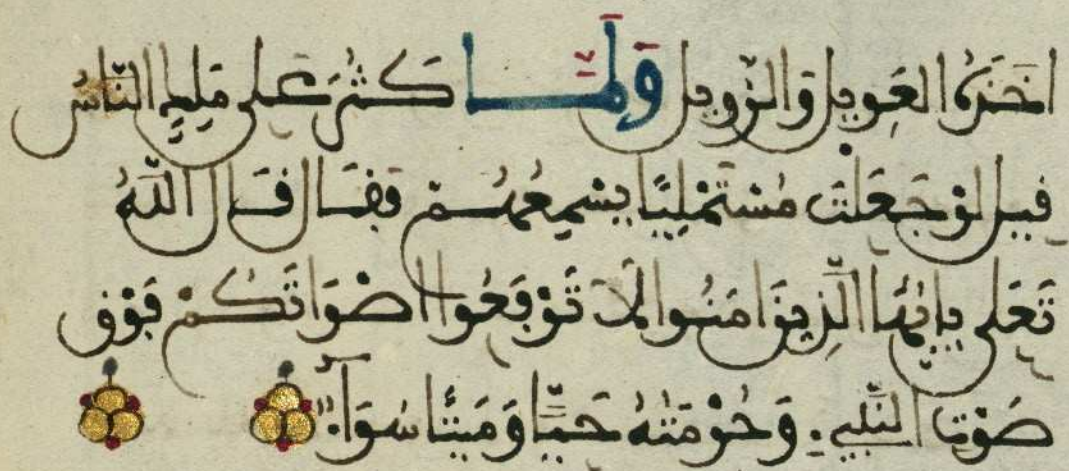 اخذه العويل والزويل ولما كثر على ملك الناس
فيل لو جعلت مستمليا يسمعهم فقال قال الله
تعلى يايها الذين ءامنوا لا ترفعوا اصواتكم فوق
صوت النبيء وحرمته حيا وميتا سوآء